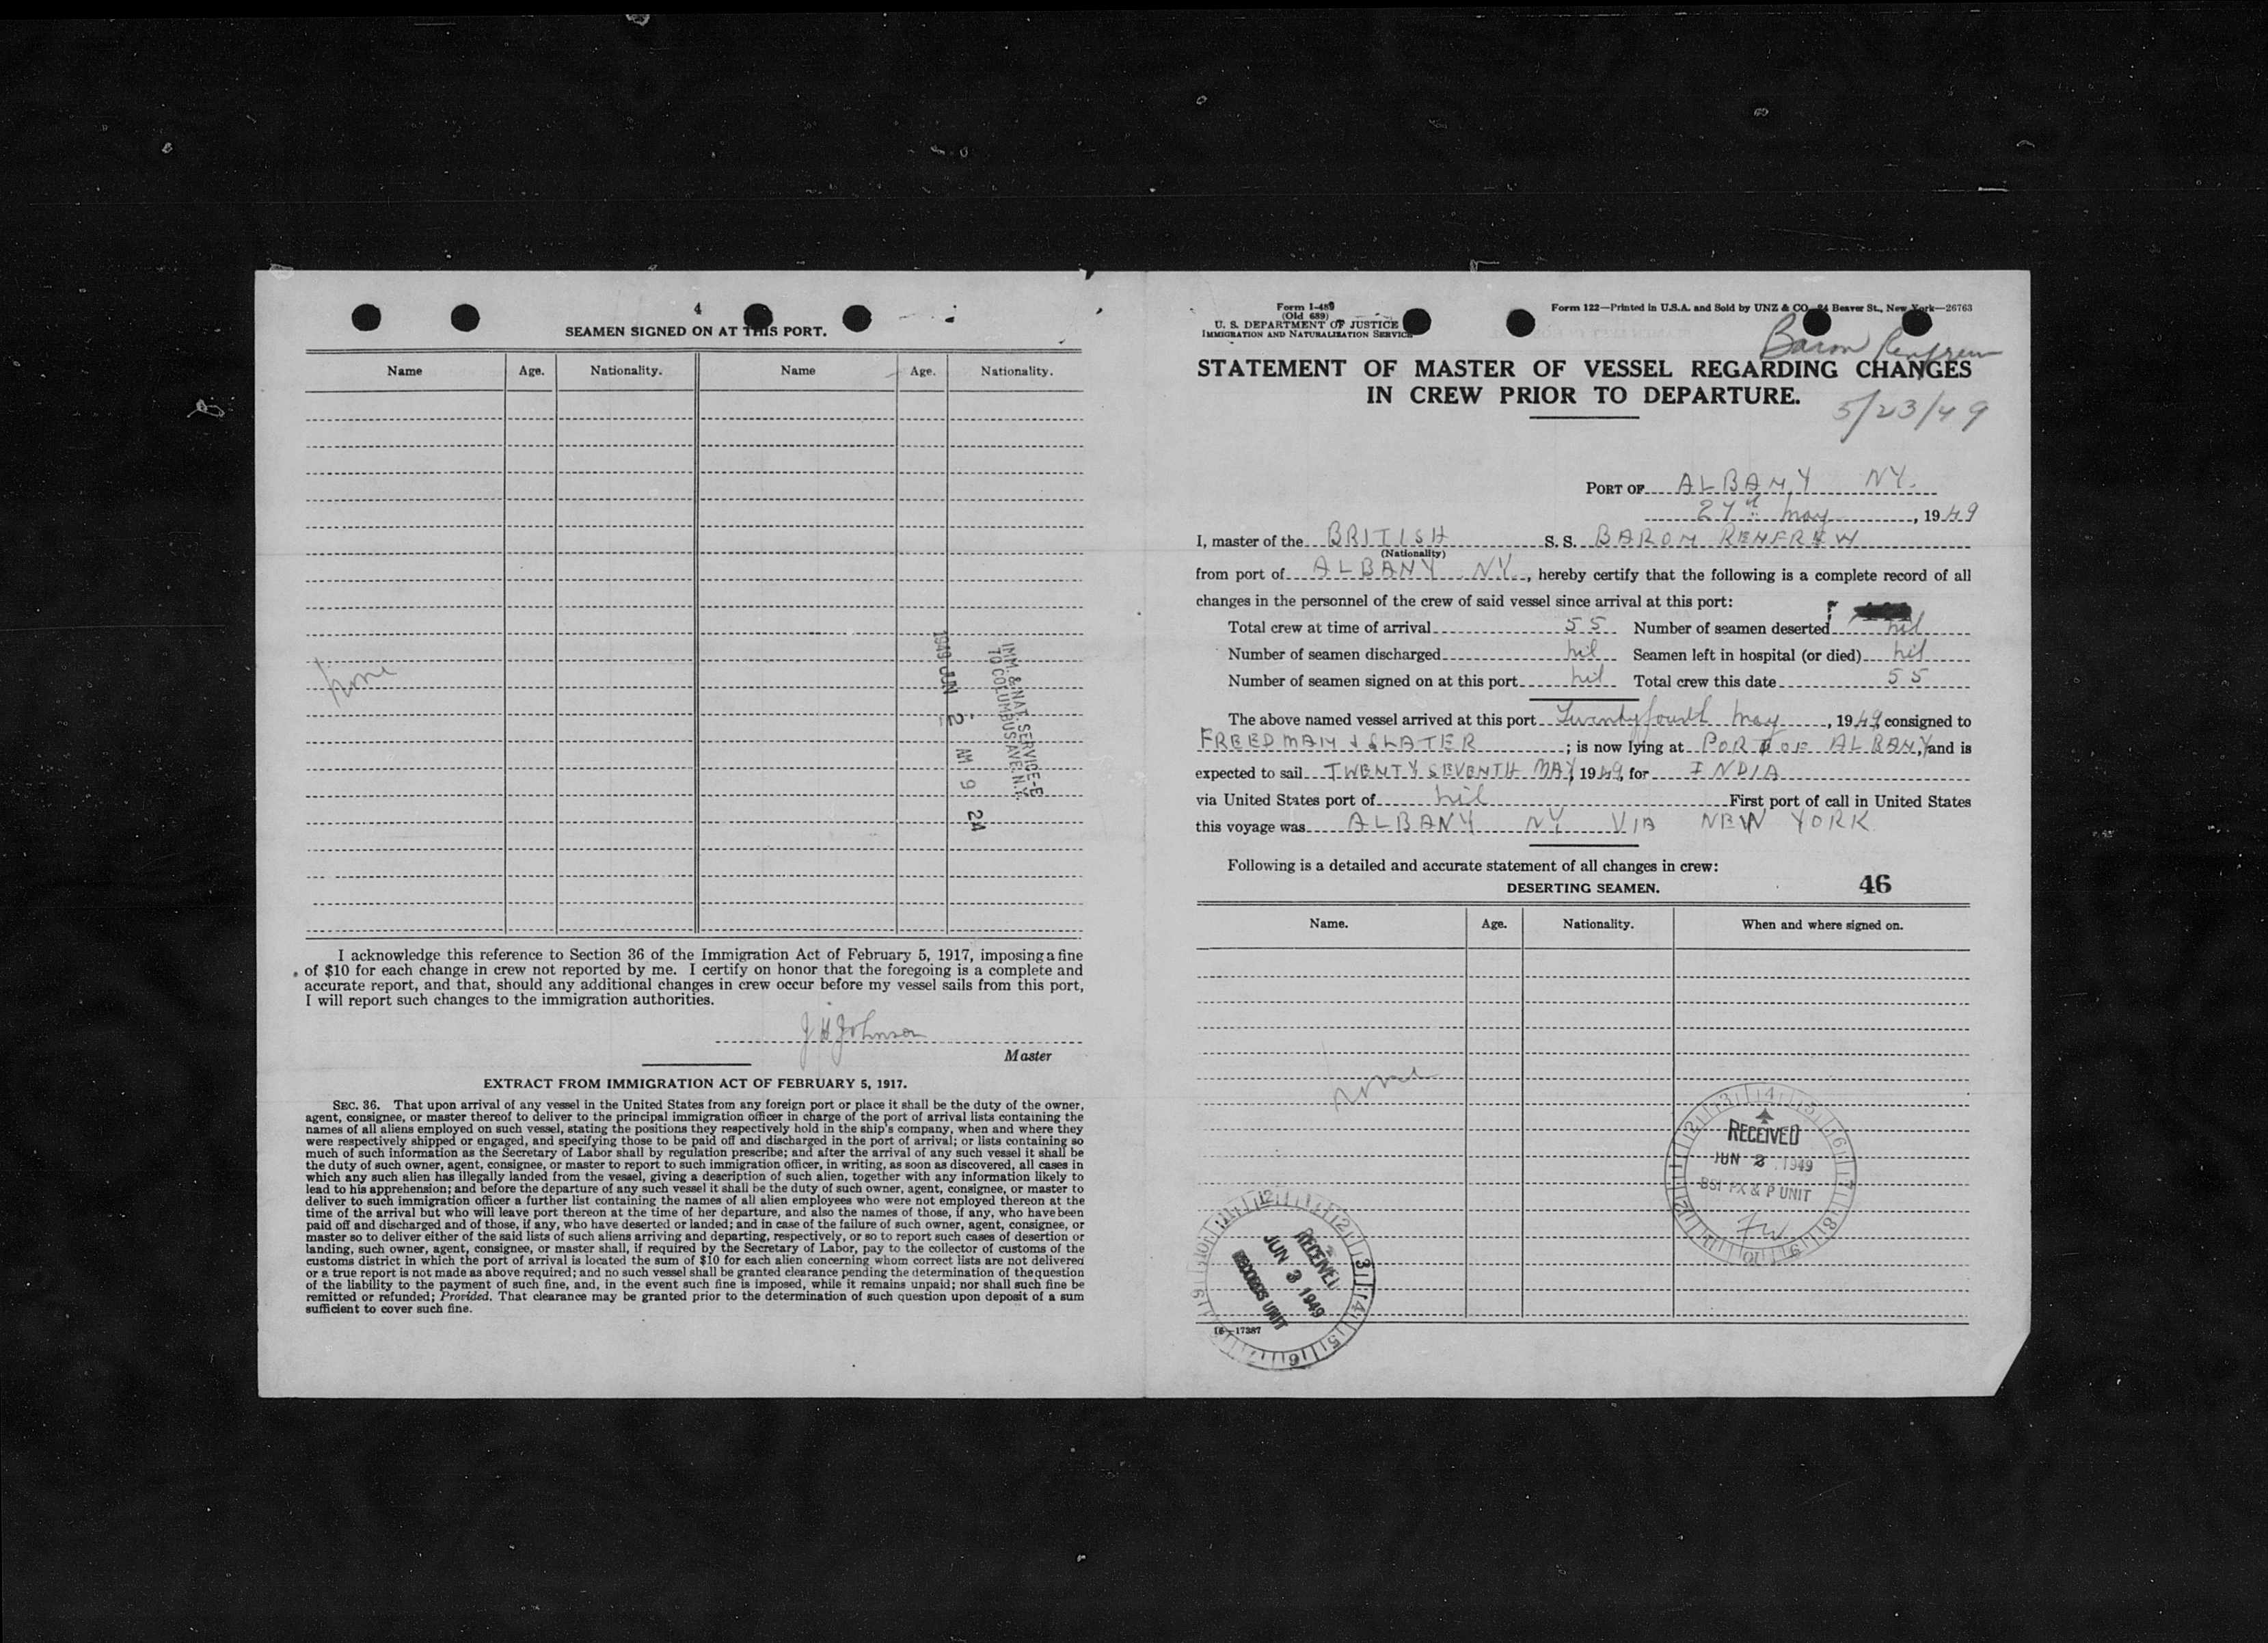 4
SEAMEN SIGNED ON AT THIS PORT.
Name Age. Nationality. Name Age. Nationality.
none
IMM. & NAT. SERVICE-E
70 COLUMBUS AVE. N.Y.
1949 JUN 2 AM 9 24
I acknowledge this reference to Section 36 of the Immigration Act of February 5, 1917, imposing a fine
of $10 for each change in crew not reported by me. I certify on honor that the foregoing is a complete and
accurate report, and that, should any additional changes in crew occur before my vessel sails from this port,
I will report such changes to the immigration authorities.
J H Johnson
Master
EXTRACT FROM IMMIGRATION ACT OF FEBRUARY 5, 1917.
SEC. 36. That upon arrival of any vessel in the United States from any foreign port or place it shall be the duty of the owner,
agent, consignee, or master thereof to deliver to the principal immigration officer in charge of the port of arrival lists containing the
names of all aliens employed on such vessel, stating the positions they respectively hold in the ship's company, when and where they
were respectively shipped or engaged, and specifying those to be paid off and discharged in the port of arrival; or lists containing so
much of such information as the Secretary of Labor shall by regulation prescribe; and after the arrival of any such vessel it shall be
the duty of such owner, agent, consignee, or master to report to such immigration officer, in writing, as soon as discovered, all cases in
which any such alien has illegally landed from the vessel, giving a description of such alien, together with any information likely to
lead to his apprehension; and before the departure of any such vessel it shall be the duty of such owner, agent, consignee, or master to
deliver to such immigration officer a further list containing the names of all alien employees who were not employed thereon at the
time of the arrival but who will leave port thereon at the time of her departure, and also the names of those, if any, who have been
paid off and discharged and of those, if any, who have deserted or landed; and in case of the failure of such owner, agent, consignee, or
master so to deliver either of the said lists of such aliens arriving and departing, respectively, or so to report such cases of desertion or
landing, such owner, agent, consignee, or master shall, if required by the Secretary of Labor, pay to the collector of customs of the
customs district in which the port of arrival is located the sum of $10 for each alien concerning whom correct lists are not delivered
or a true report is not made as above required; and no such vessel shall be granted clearance pending the determination of the question
of the liability to the payment of such fine, and, in the event such fine is imposed, while it remains unpaid; nor shall such fine be
remitted or refunded; Provided, That clearance may be granted prior to the determination of such question upon deposit of a sum
sufficient to cover such fine.
Form I-489
(Old 689)
U. S. DEPARTMENT OF JUSTICE
IMMIGRATION AND NATURALIZATION SERVICE
Form 122—Printed in U.S.A. and Sold by UNZ & CO. 24 Beaver St., New York—26763
Baron Renfrew
STATEMENT OF MASTER OF VESSEL REGARDING CHANGES
IN CREW PRIOR TO DEPARTURE.
5/23/49
PORT OF ALBANY NY.
27th May, 1949
I, master of the BRITISH S. S. BARON RENFREW
(Nationality)
from port of ALBANY NY., hereby certify that the following is a complete record of all
changes in the personnel of the crew of said vessel since arrival at this port:
Total crew at time of arrival 55 Number of seamen deserted nil
Number of seamen discharged nil Seamen left in hospital (or died) nil
Number of seamen signed on at this port nil Total crew this date 55
The above named vessel arrived at this port Twentyfourth May, 1949 consigned to
FREEDMAN & SLATER; is now lying at PORT OF ALBANY, and is
expected to sail TWENTY SEVENTH MAY, 1949, for INDIA
via United States port of nil First port of call in United States
this voyage was ALBANY NY VIA NEW YORK
Following is a detailed and accurate statement of all changes in crew:
DESERTING SEAMEN. 46
Name. Age. Nationality. When and where signed on.
none
RECEIVED
JUN 2 1949
BSI PX & P UNIT
FW
RECEIVED
JUN 3 1949
RECORDS UNIT
16—17387